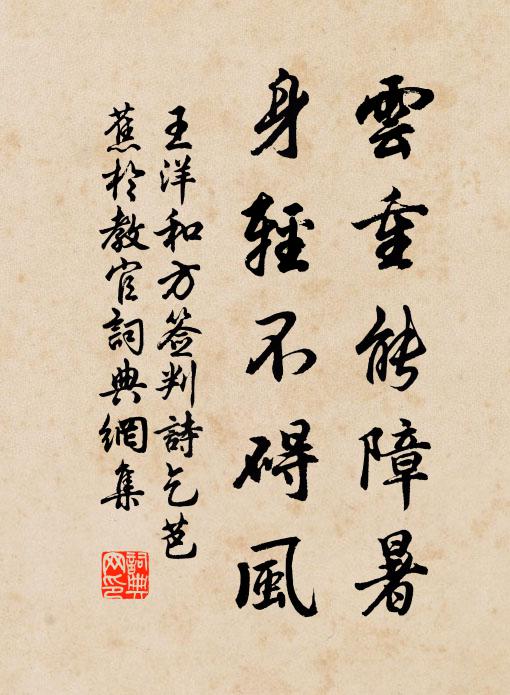 雲重能障暑
身輕不碍風
王洋和方签判詩乞芭
蕉於教官詞典網集
詞典网印